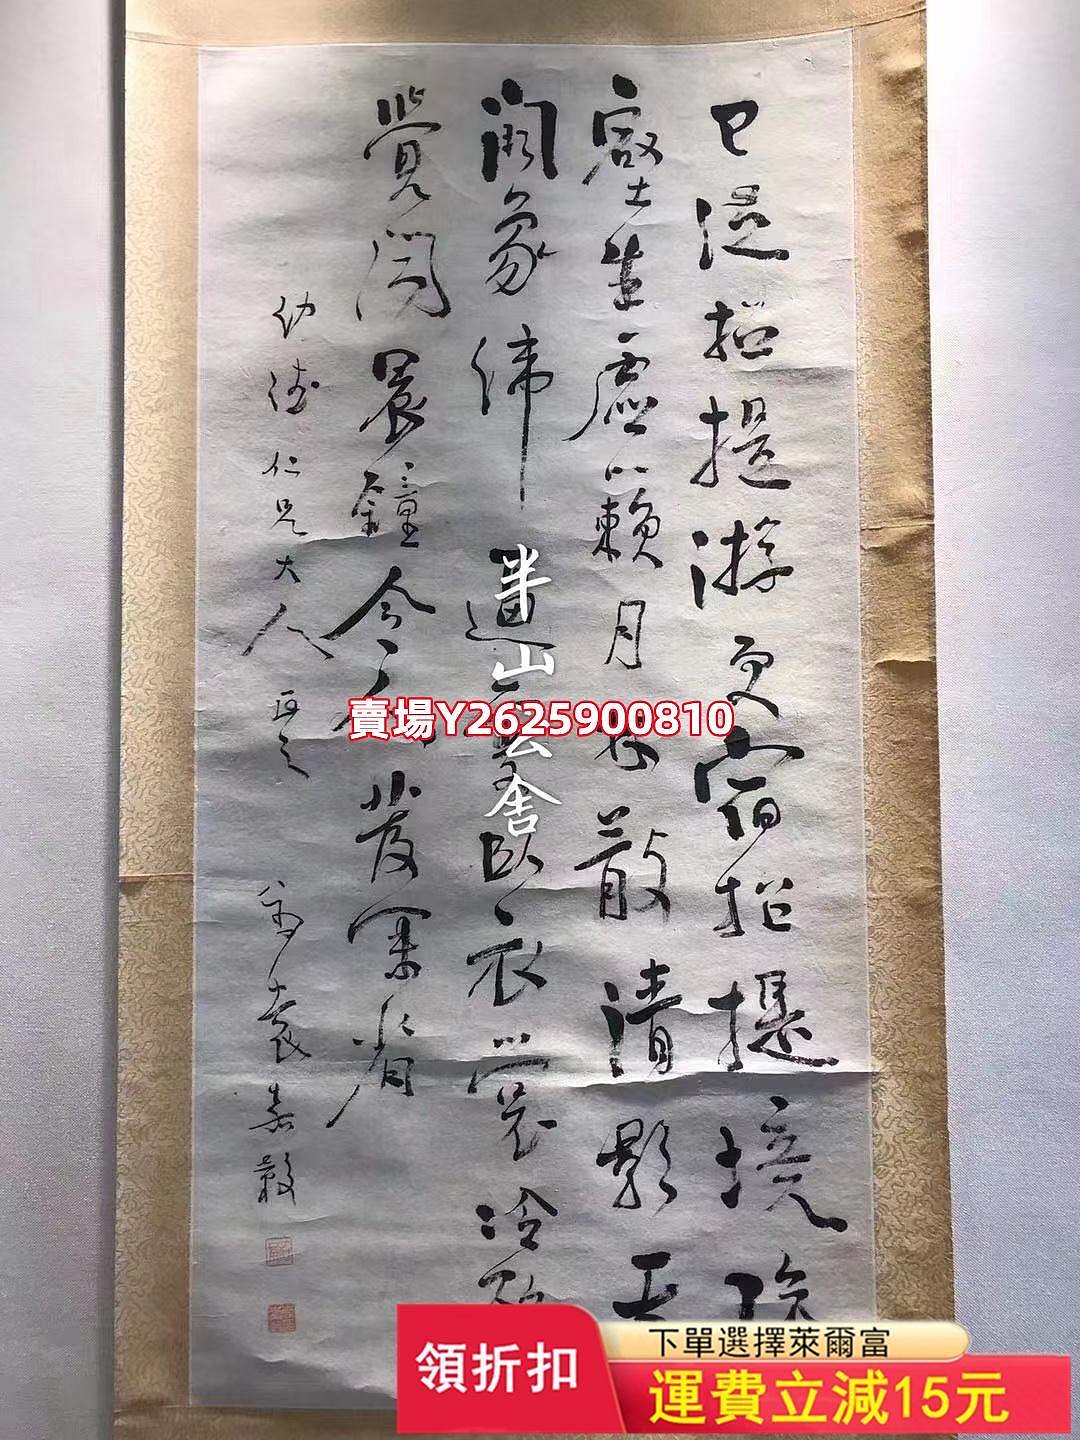 已從招提游更宿招提境陰
壑生虛籟月林散清影天
闕象緯逼雲臥衣裳冷欲
覺聞晨鐘令人發深省
仁兄大人正之
袁嘉穀
半山云舍
賣場Y2625900810
領折扣
下單選擇萊爾富
運費立減15元